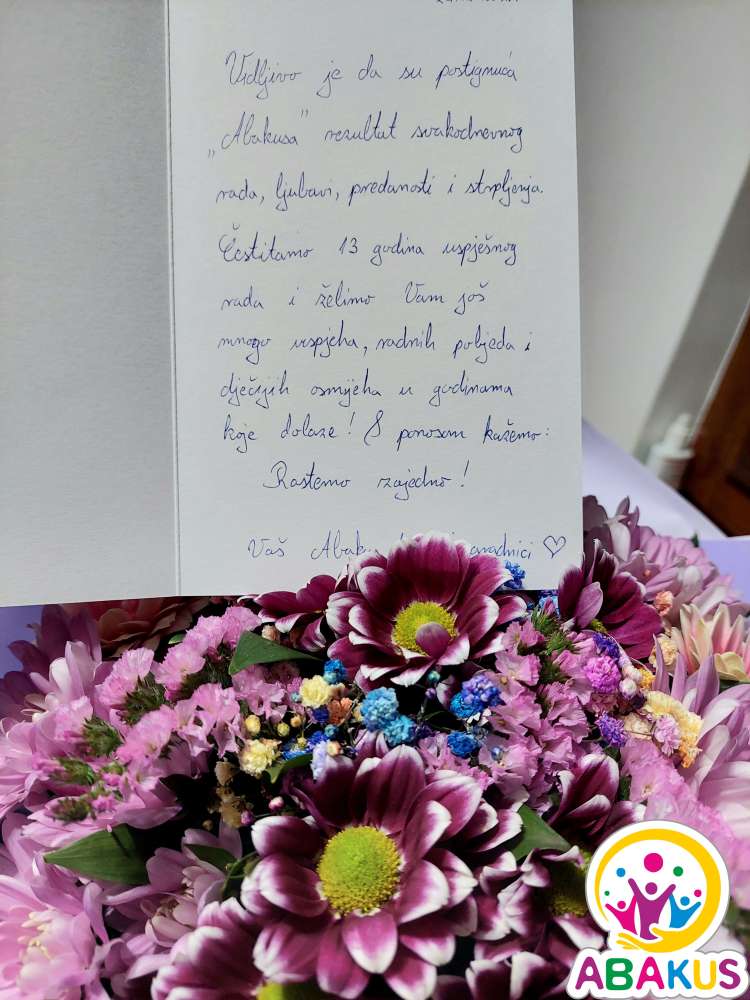 Vidljivo je da su postignuća
„Abakusa" rezultat svakodnevnog
rada, ljubavi, predanosti i strpljenja.
Čestitamo 13 godina uspješnog
rada i želimo Vam još
mnogo uspjeha, radnih pobjeda i
dječijih osmijeha u godinama
koje dolaze! S ponosom kažemo:
Rastemo zajedno!
Vaš
ABAKUS